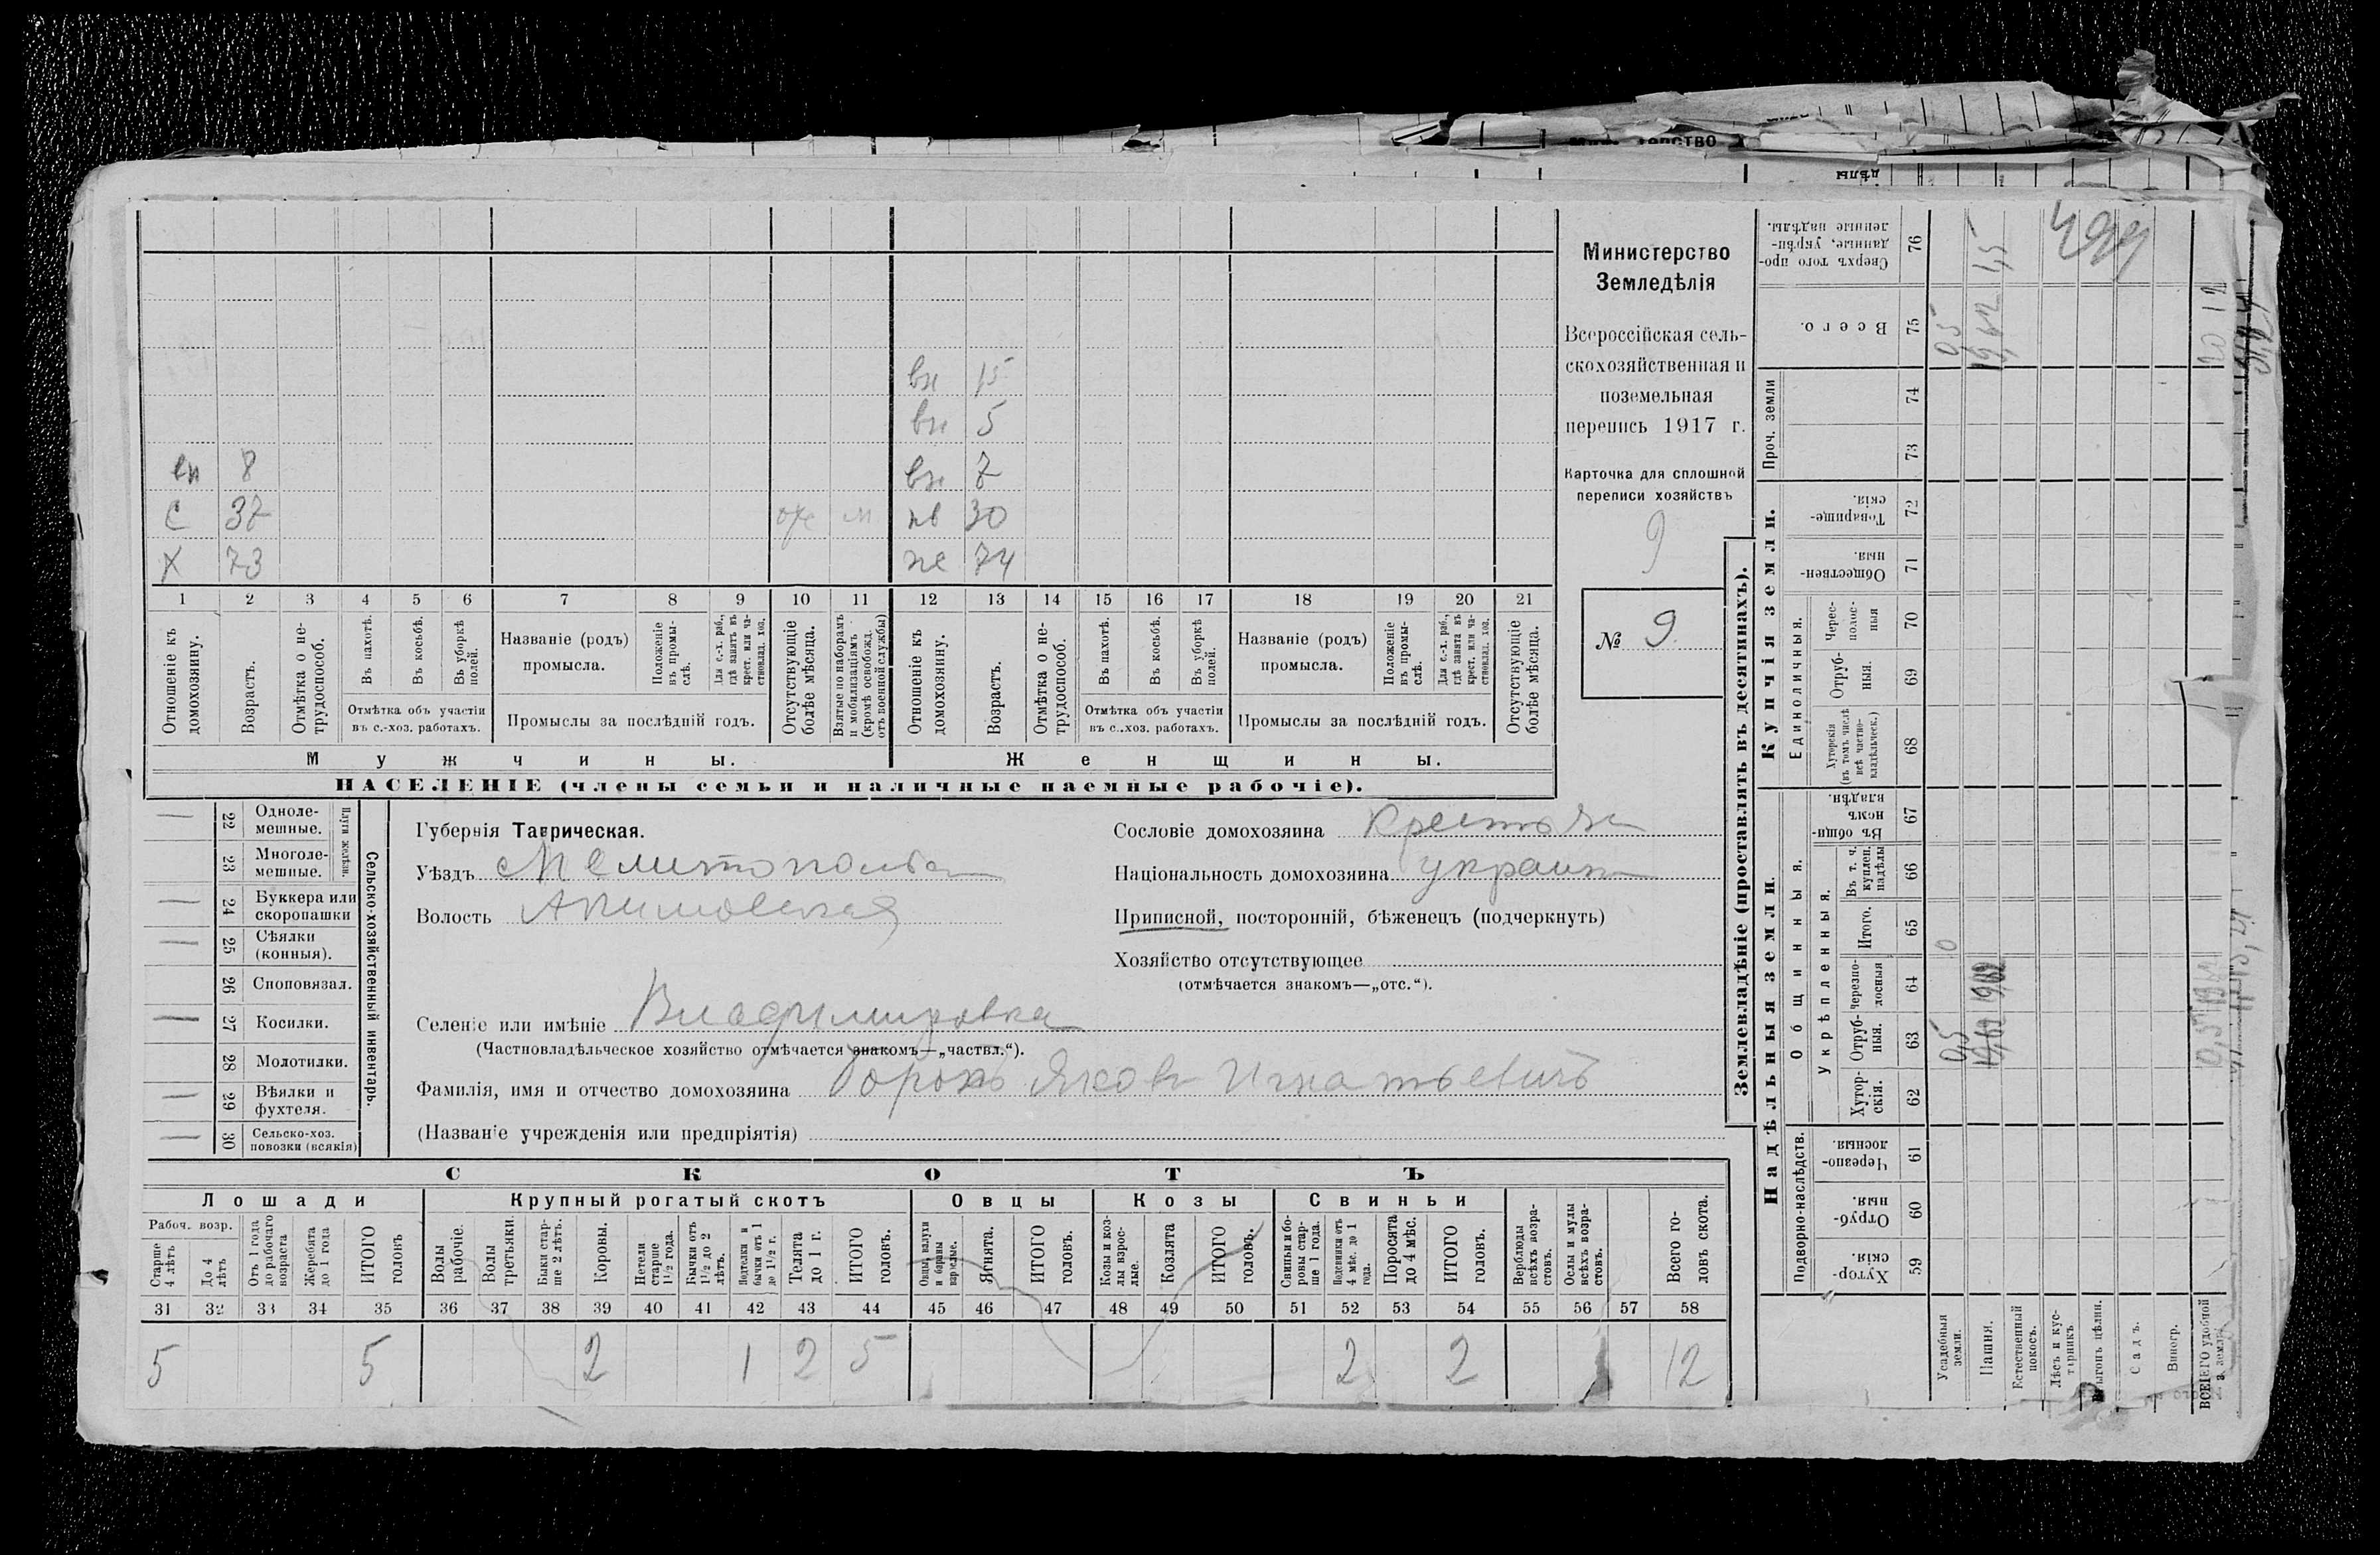 Министерство
Земледѣлія
Всероссійская сель-
скохозяйственная и
поземельная
перепись 1917 г.
Карточка для сплошной
переписи хозяйствъ
9
№ 9.
вн 15
вн 5
вн 8 вн 7
С 37 м 30
Х 73 же 74
1 2 3 4 5 6 7 8 9 10 11 12 13 14 15 16 17 18 19 20 21
Отношеніе къ домохозяину.
Возрастъ.
Отмѣтка о не-трудоспособ.
Въ пахотѣ.
Въ косьбѣ.
Въ уборкѣ полей.
Отмѣтка объ участіи
въ с.-хоз. работахъ.
Названіе (родъ)
промысла.
Положеніе въ промы-слѣ.
Для с.-х. раб., гдѣ занятъ въ крест. или ча-стновлад. хоз.
Промыслы за послѣдній годъ.
Отсутствующіе болѣе мѣсяца.
Взятые по наборамъ и мобилизаціямъ (кромѣ освобожд. отъ военной службы)
Отношеніе къ домохозяину.
Возрастъ.
Отмѣтка о не-трудоспособ.
Въ пахотѣ.
Въ косьбѣ.
Въ уборкѣ полей.
Отмѣтка объ участіи
въ с.-хоз. работахъ.
Названіе (родъ)
промысла.
Положеніе въ промы-слѣ.
Для с.-х. раб., гдѣ занята въ крест. или ча-стновлад. хоз.
Промыслы за послѣдній годъ.
Отсутствующіе болѣе мѣсяца.
Мужчины. Женщины.
НАСЕЛЕНІЕ (члены семьи и наличные наемные рабочіе).
22 Одноле-мешные.
23 Многоле-мешные.
Плуги желѣзн.
24 Буккера или скоропашки
25 Сѣялки (конныя).
26 Сноповязал.
27 Косилки.
28 Молотилки.
29 Вѣялки и фухтеля.
30 Сельско-хоз. повозки (всякія)
Сельско-хозяйственный инвентарь.
Губернія Таврическая.
Уѣздъ Мелитопольск
Волость Акимовская
Селеніе или имѣніе Владимировка
(Частновладѣльческое хозяйство отмѣчается знакомъ—„частвл.“).
Фамилія, имя и отчество домохозяина Горохъ Яковъ Игнатьевичъ
(Названіе учрежденія или предпріятія)
Сословіе домохозяина Крестьян
Національность домохозяина украин
Приписной, посторонній, бѣженецъ (подчеркнуть)
Хозяйство отсутствующее
(отмѣчается знакомъ—„отс.“).
СКОТЪ
Лошади Крупный рогатый скотъ Овцы Козы Свиньи
Рабоч. возр.
Старше 4 лѣтъ
До 4 лѣтъ
Отъ 1 года до рабочаго возраста
Жеребята до 1 года
ИТОГО головъ
Волы рабочіе.
Волы третьяки.
Быки стар-ше 2 лѣтъ.
Коровы.
Нетели старше 1½ года.
Бычки отъ 1½ до 2 лѣтъ.
Подтелки и бычки отъ 1 до 1½ г.
Телята до 1 г.
ИТОГО головъ.
Овцы, валухи и бараны взрослые.
Ягнята.
ИТОГО головъ.
Козы и коз-лы взрос-лые.
Козлята
ИТОГО головъ.
Свиньи и бо-ровы стар-ше 1 года.
Подсвинки отъ 4 мѣс. до 1 года.
Поросята до 4 мѣс.
ИТОГО головъ.
Верблюды всѣхъ возра-стовъ.
Ослы и мулы всѣхъ возра-стовъ.
Всего го-ловъ скота.
31 32 33 34 35 36 37 38 39 40 41 42 43 44 45 46 47 48 49 50 51 52 53 54 55 56 57 58
5 5 2 1 2 5 2 2 12
Землевладѣніе (проставлять въ десятинахъ).
Надѣльныя земли. Купчія земли. Проч. земли
Подворно-наслѣдств.
Общинныя.
Укрѣпленныя.
Единоличныя.
Хутор-скія. 59
Отруб-ныя. 60
Черезпо-лосныя. 61
Хутор-скія. 62
Отруб-ныя. 63
Черезпо-лосныя 64
Итого. 65
Въ т. ч. куплен. надѣлы 66
Въ общи-номъ владѣн. 67
Хуторскія (въ томъ числѣ всѣ частно-владѣльческ.) 68
Отруб-ныя. 69
Черес-полос-ныя 70
Обществен-ныя. 71
Товарище-скія. 72
73
74
Всего. 75
Сверхъ того про-данные, укрѣп-ленные надѣлы. 76
Усадебныя земли. 0,5 0,5
Пашни. 19,62 4,5
Естественный покосъ.
Лѣсъ и кус-тарникъ
Выгонъ цѣлин.
Садъ.
Виногр.
ВСЕГО удобной земли 20 12